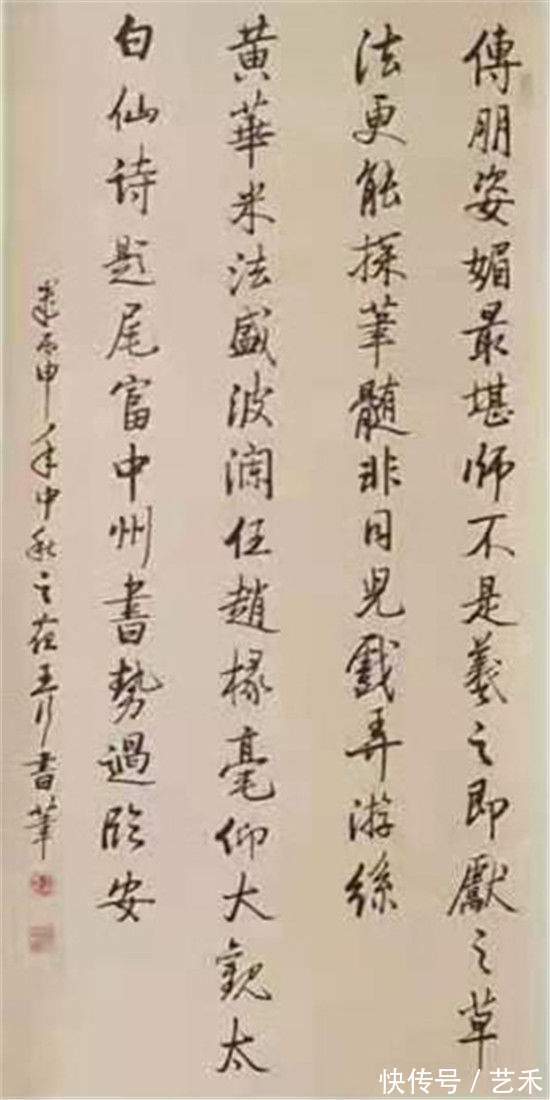 傳朋姿媚最堪師不是羲之即獻之草
法更能探筆髓非同兒戲弄游絲
黃華米法盛波瀾任趙椽毫仰大觀太
白仙诗題尾富中州書勢過臨安
丙申年中秋之夜書筆
快传号/艺禾